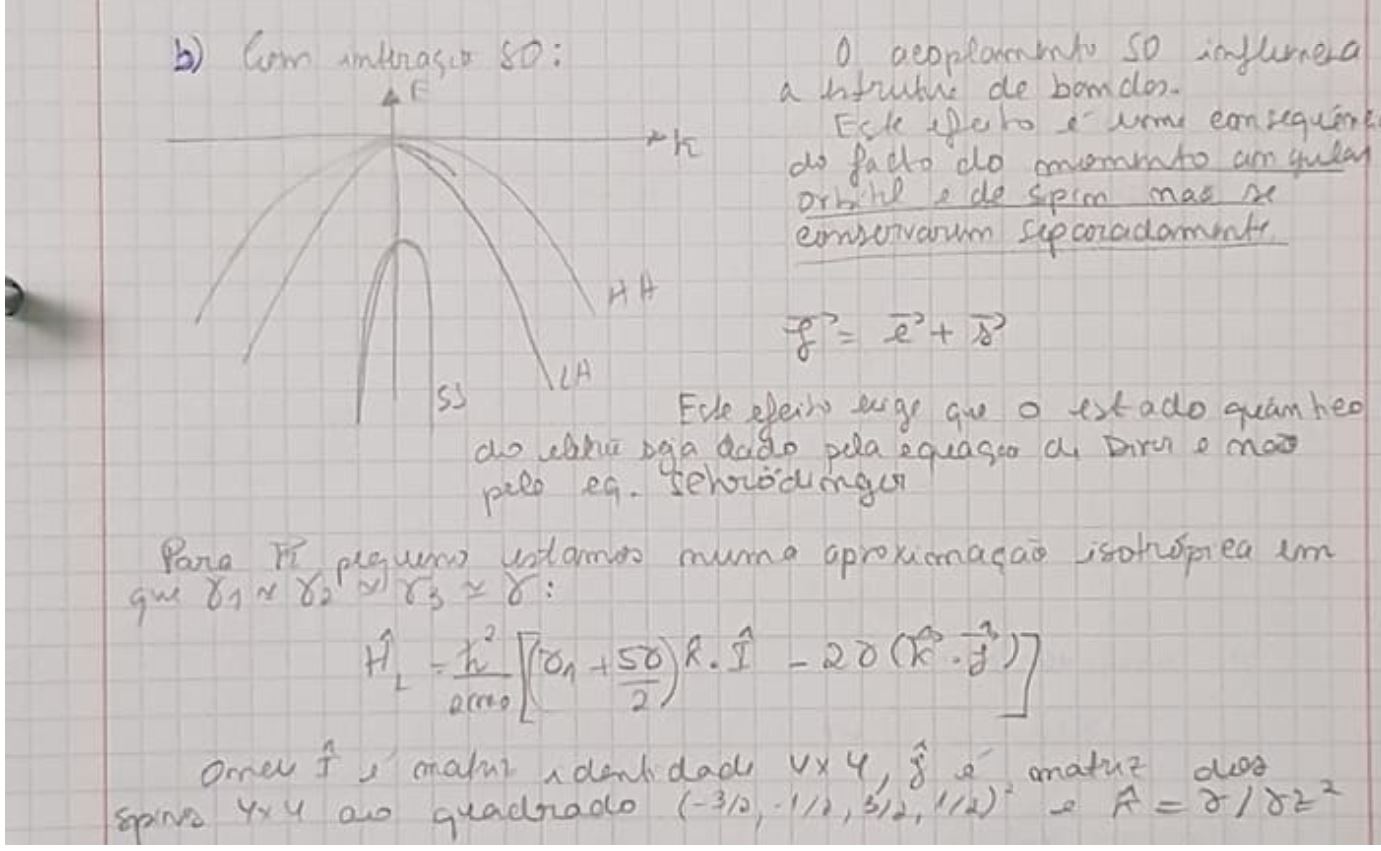 b) Com interação SO:
E
k
HH
LH
SS
O acoplamento SO influencia
a estrutura de bandas.
Este efeito é uma consequênc
do facto do momento angular
orbital e de spin nao se
conservarem separadamente
j = l + s
Este efeito exige que o estado quântico
do seja dado pela equação de Dirac e nao
pela eq. Schrödinger
Para k pequeno estamos numa aproximação isotrópica em
que γ1 ≈ γ2 ≈ γ3 ≃ γ:
Ĥ_L = ħ²/2m0 [(γ1 + 5γ/2) k . Î - 2γ (k . ĵ)]
Î é matriz identidade 4x4, ĵ é matriz dos
spins 4x4 ao quadrado (-3/2, -1/2, 3/2, 1/2)² e k̂ = γ/γz²